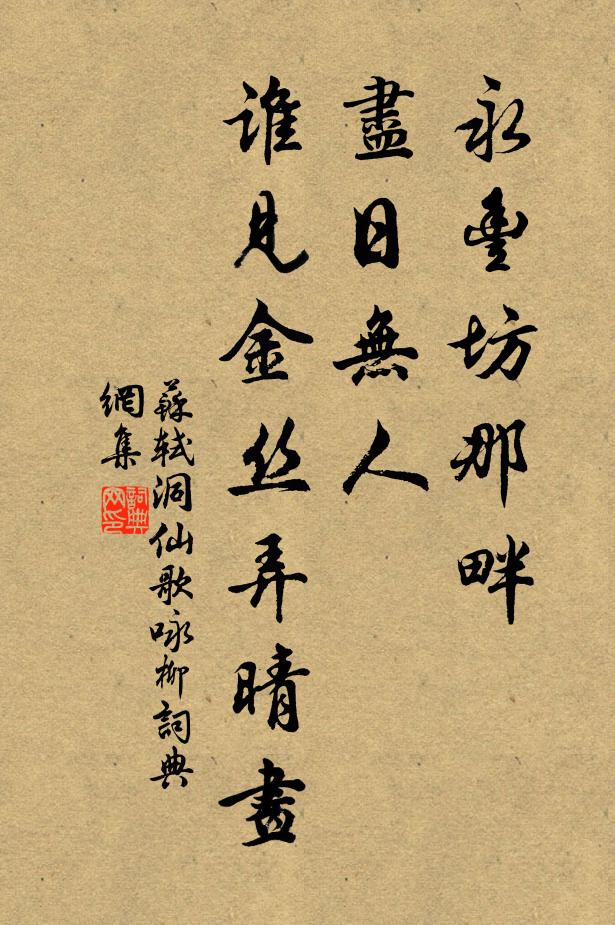 永豐坊那畔
盡日無人
誰見金丝弄晴晝
蘇軾洞仙歌咏柳詞典
網集
詞典
网印